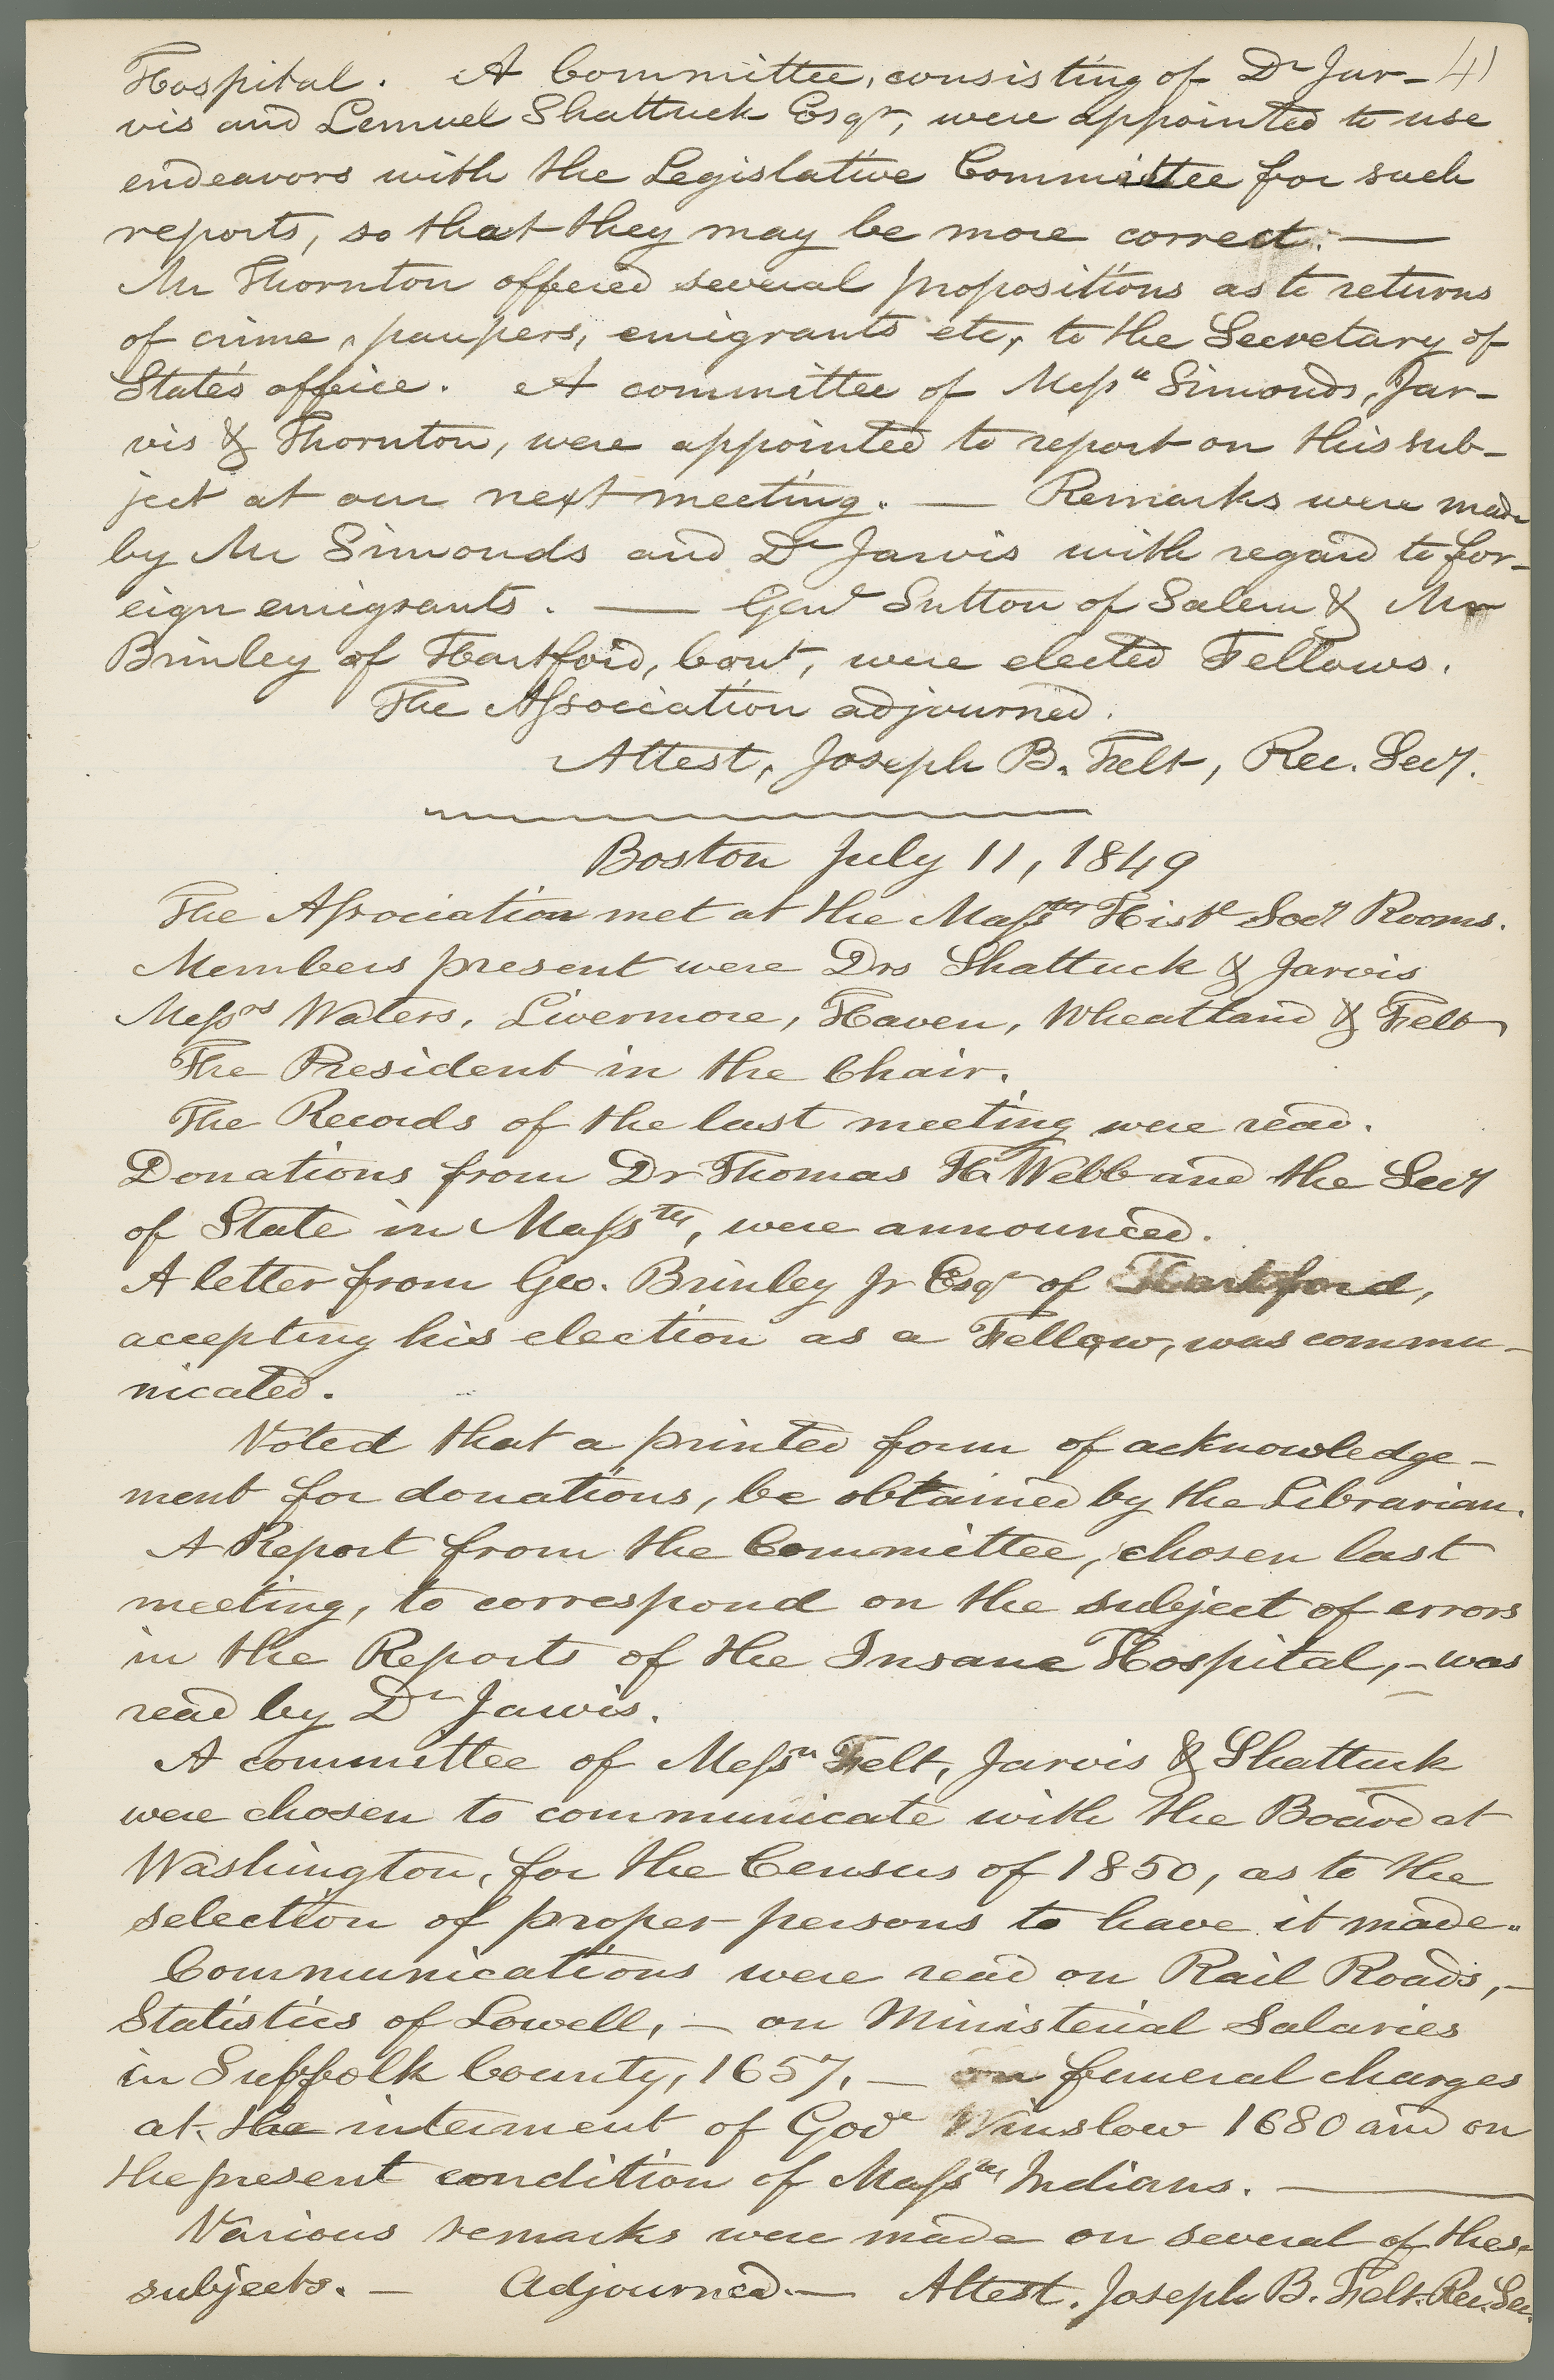 41
Hospital. A Committee, consisting of Dr Jar-
vis and Lemuel Shattuck Esqr, were appointed to use
endeavors with the Legislative Committee for such
reports, so that they may be more correct. —
Mr Thornton offered several propositions as to returns
of crime, paupers, emigrants etc, to the Secretary of
State's office. A committee of Messrs Simonds, Jar-
vis & Thornton, were appointed to report on this sub-
ject at our next meeting. — Remarks were made
by Mr Simonds and Dr Jarvis with regard to for-
eign emigrants. — Genl Sutton of Salem & Mr
Brinley of Hartford, Cont, were elected Fellows.
The Association adjourned.
Attest, Joseph B. Felt, Rec. Secy.
Boston July 11, 1849
The Association met at the Massts Histl Socy Rooms.
Members present were Drs Shattuck & Jarvis
Messrs Waters, Livermore, Haven, Wheatland & Felt
The President in the Chair.
The Records of the last meeting were read.
Donations from Dr Thomas H. Webb and the Secy
of State in Massts, were announced.
A letter from Geo. Brinley Jr Esqr of Hartford,
accepting his election as a Fellow, was commu-
nicated.
Voted that a printed form of acknowledge-
ment for donations, be obtained by the Librarian.
A Report from the Committee, chosen last
meeting, to correspond on the subject of errors
in the Reports of the Insane Hospital, - was
read by Dr Jarvis.
A committee of Messrs Felt, Jarvis & Shattuck
were chosen to communicate with the Board at
Washington, for the Census of 1850, as to the
selection of proper persons to have it made.
Communications were read on Rail Roads, -
Statistics of Lowell, - on Ministerial Salaries
in Suffolk County, 1657, - on funeral charges
at the interment of Govr Winslow 1680 and on
the present condition of Massts Indians. —
Various remarks were made on several of these
subjects. - Adjourned. — Attest. Joseph B. Felt. Rec. Sec.